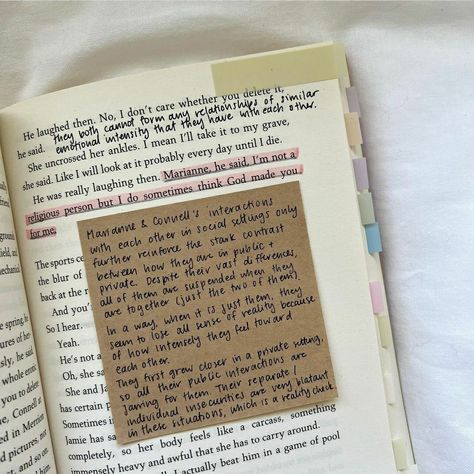 He laughed then. No, I don't care whether you delete it,
he said. they both cannot form any relationships of similar
emotional intensity that they have with each other.
She uncrossed her ankles. I mean I'll take it to my grave,
she said. Like I will look at it probably every day until I die.
He was really laughing then. Marianne, he said, I'm not a
religious person but I do sometimes think God made you
for me.
Marianne & Connell's interactions
with each other in social settings only
further reinforce the stark contrast
between how they are in public +
private. Despite their vast differences,
all of them are suspended when they
are together (just the two of them).
In a way, when it is just them, they
seem to lose all sense of reality because
of how intensely they feel toward
each other.
They first grew closer in a private setting,
so all their public interactions are
jarring for them. Their separate/
individual insecurities are very blatant
in these situations, which is a reality check.
The sports ce
the blur of
back at the r
And you'
So I hear.
Yeah.
He's not a
Oh, she sa
She and Ja
has certain p
Sometimes i
Jamie has sai
completely, so her body feels like a carcass, something
immensely heavy and awful that she has to carry around.
I actually beat him in a game of pool
and
mechanical
the spring, he
ever since
whole order
, Connell at
pictures, not
and so on,